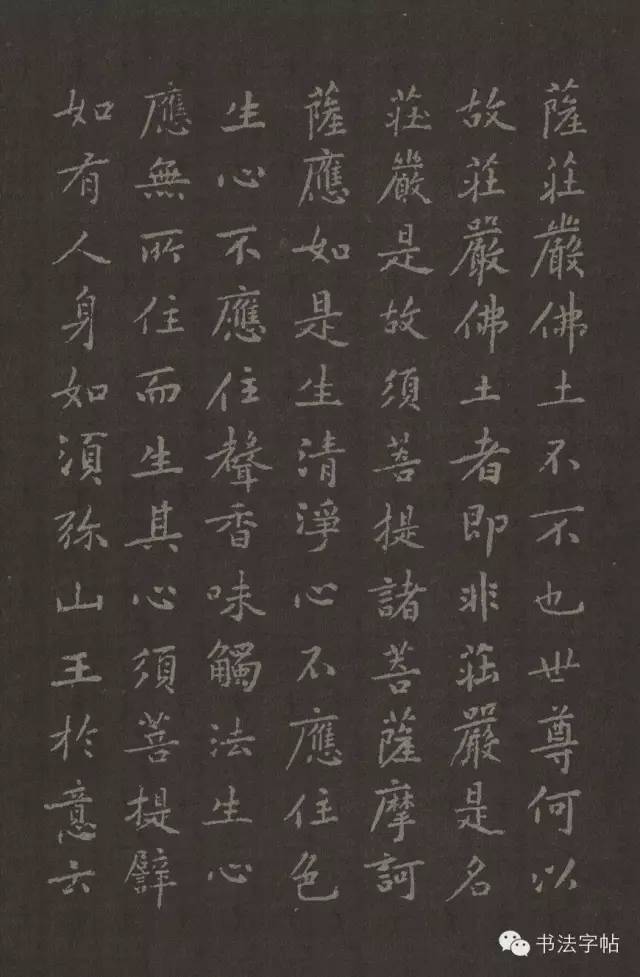 薩莊嚴佛土不不也世尊何以
故莊嚴佛土者即非莊嚴是名
莊嚴是故須菩提諸菩薩摩訶
薩應如是生清淨心不應住色
生心不應住聲香味觸法生心
應無所住而生其心須菩提譬
如有人身如須弥山王於意云
书法字帖